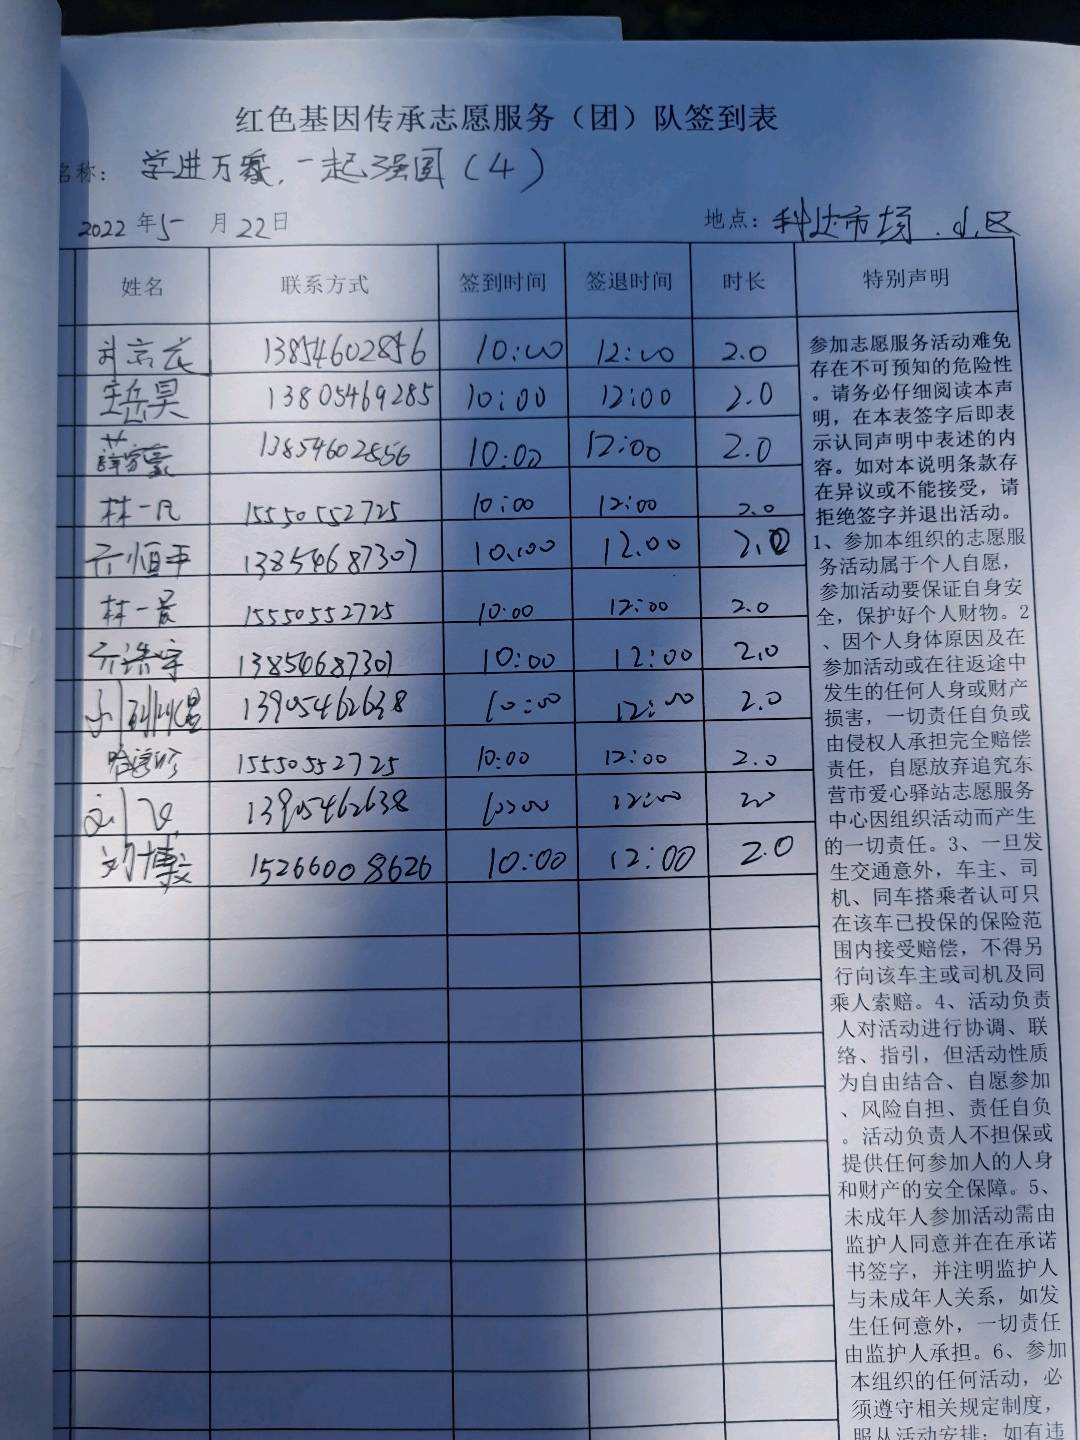 红色基因传承志愿服务（团）队签到表
名称： 学进万家，一起强国（4）
2022年5月22日 地点：科达市场.小区
姓名 联系方式 签到时间 签退时间 时长 特别声明
13854602856 10:00 12:00 2.0
岳昊 13805469285 10:00 12:00 2.0
薛家豪 13854602856 10:00 12:00 2.0
林一凡 15550552725 10:00 12:00 2.0
亓恒平 13854687307 10:00 12:00 2.0
林一晨 15550552725 10:00 12:00 2.0
13854687307 10:00 12:00 2.0
13905462638 10:00 12:00 2.0
15550552725 10:00 12:00 2.0
刘飞 13905462638 10:00 12:00 2.0
刘博文 15266008626 10:00 12:00 2.0
参加志愿服务活动难免
存在不可预知的危险性
。请务必仔细阅读本声
明，在本表签字后即表
示认同声明中表述的内
容。如对本说明条款存
在异议或不能接受，请
拒绝签字并退出活动。
1、参加本组织的志愿服
务活动属于个人自愿，
参加活动要保证自身安
全，保护好个人财物。2
、因个人身体原因及在
参加活动或在往返途中
发生的任何人身或财产
损害，一切责任自负或
由侵权人承担完全赔偿
责任，自愿放弃追究东
营市爱心驿站志愿服务
中心因组织活动而产生
的一切责任。3、一旦发
生交通意外，车主、司
机、同车搭乘者认可只
在该车已投保的保险范
围内接受赔偿，不得另
行向该车主或司机及同
乘人索赔。4、活动负责
人对活动进行协调、联
络、指引，但活动性质
为自由结合、自愿参加
、风险自担、责任自负
。活动负责人不担保或
提供任何参加人的人身
和财产的安全保障。5、
未成年人参加活动需由
监护人同意并在在承诺
书签字，并注明监护人
与未成年人关系，如发
生任何意外，一切责任
由监护人承担。6、参加
本组织的任何活动，必
须遵守相关规定制度，
服从活动安排；如有违